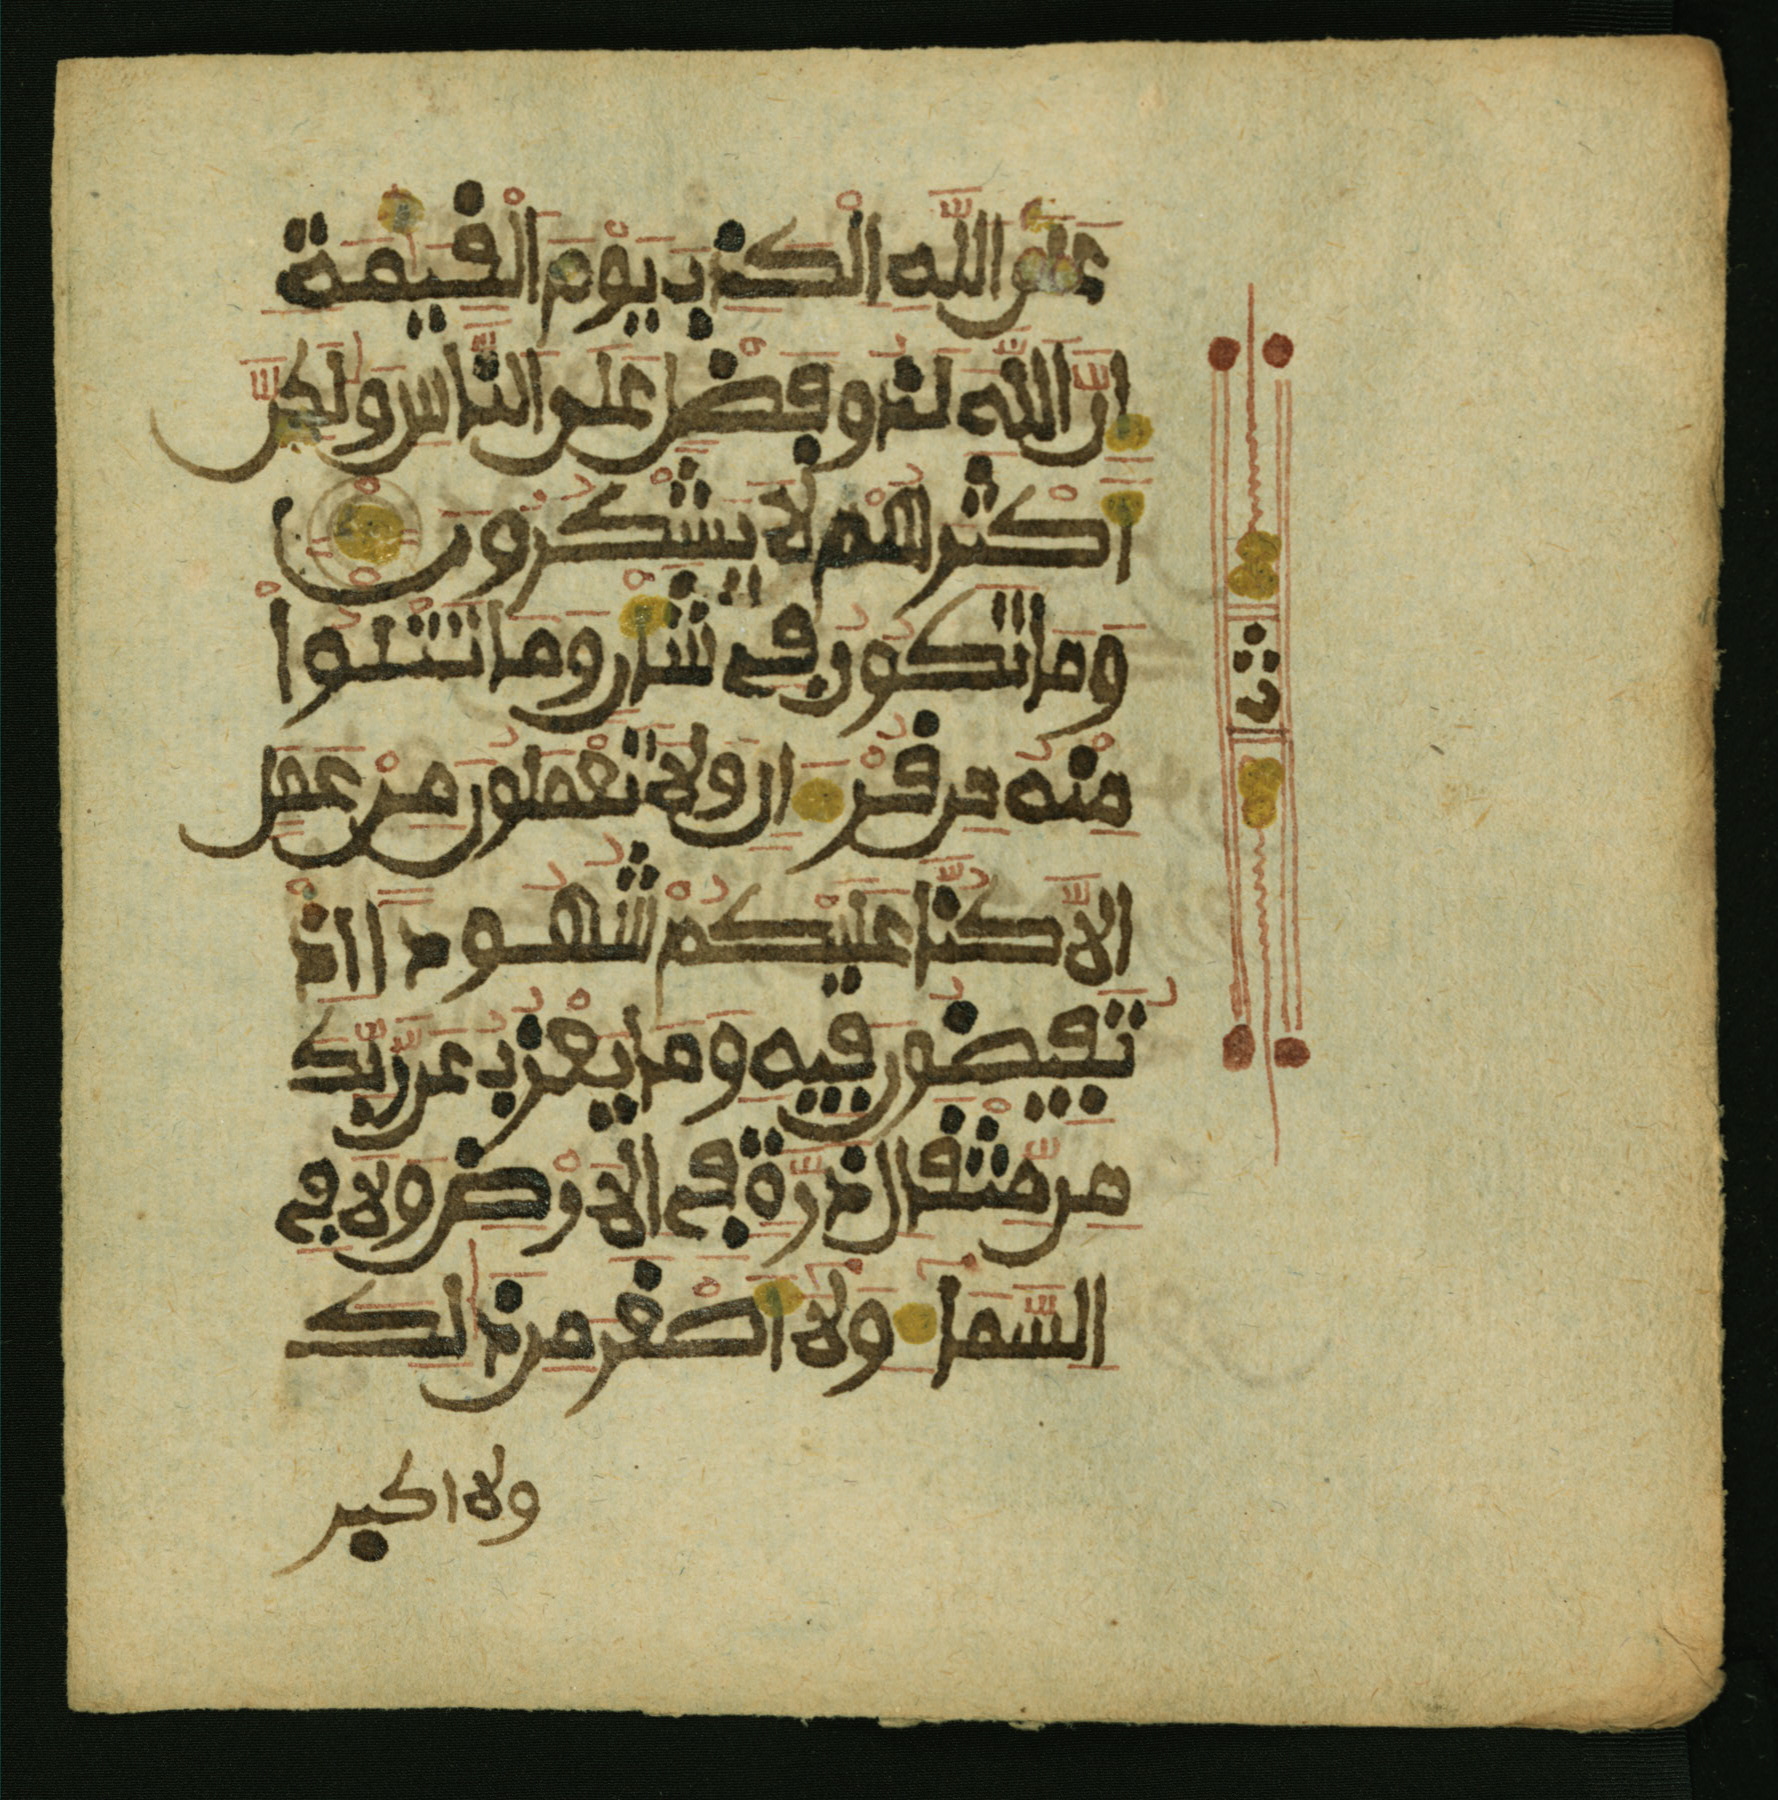 على الله الكذب يوم القيمة
ان الله لذو فضل على الناس ولكن
اكثرهم لا يشكرون
وما تكون في شان وما تتلوا
منه من قرءان ولا تعملون من عمل
الا كنا عليكم شهودا اذ
تفيضون فيه وما يعزب عن ربك
من مثقال ذرة في الارض ولا في
السماء ولا اصغر من ذلك
ولا اكبر